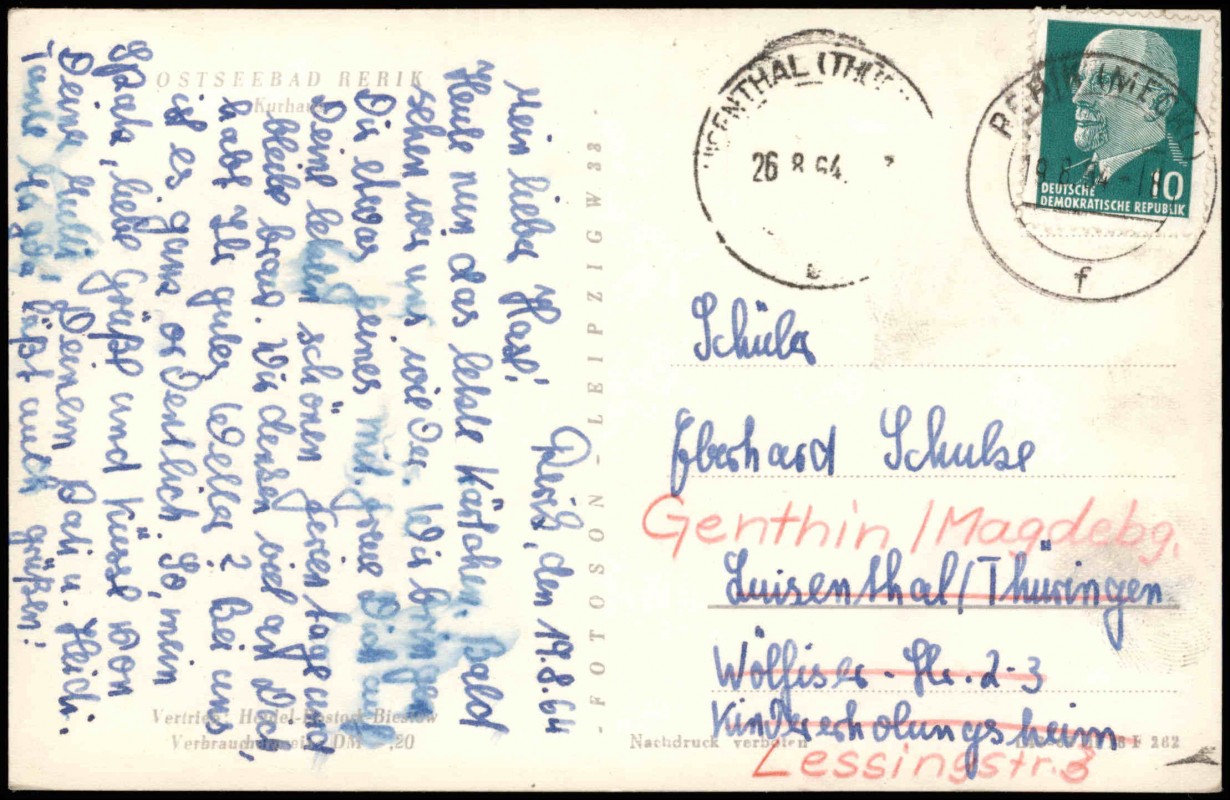 OSTSEEBAD RERIK
Kurhaus
Rerik, den 19.8.64
Mein lieber Hasi!
Heute nun das letzte Kärtchen. Bald
sehen wir uns wieder. Wir bringen
Dir etwas feines mit. Freue Dich auf
Deine letzten schönen Ferientage und
bleibe brav. Wir denken viel an Dich,
habt Ihr gutes Wetter? Bei uns
ist es ganz ordentlich. So, mein
Spatz, liebe Grüße und Küsse von
Deiner Mutti, Deinem Pati u. Heidi.
Tante Magda läßt auch grüßen!
Vertrieb: Rostock-Biestow
Verbraucherpreis DM ,20
- FOTOSON - LEIPZIG W 33 -
LUISENTHAL (THÜR
26.8.64.
b
RERIK (MECKL)
19.8.64
f
10
DEUTSCHE
DEMOKRATISCHE REPUBLIK
Schüler
Eberhard Schulze
Genthin / Magdebg.
Luisenthal / Thüringen
Wölfiser-Str. 2-3
Kindererholungsheim
Nachdruck verboten
282
Lessingstr. 3